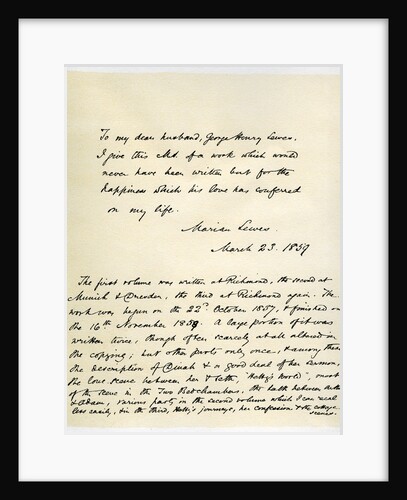 To my dear husband, George Henry Lewes.
I give this MS. of a work which would
never have been written but for the
happiness which his love has conferred
on my life.
Marian Lewes
March 23. 1859
The first volume was written at Richmond, the second at
Munich & Dresden, the third at Richmond again. The
work was begun on the 22d. October 1857, & finished on
the 16th November 1858. A large portion of it was
written twice, though often scarcely at all altered in
the copying; but other parts only once, & among these
the description of Dinah & a good deal of her sermon,
the love scene between her & Seth, "Hetty's World", most
of the scene in the Two Bedchambers, the talk between
& Adam, various parts in the second volume which I can recal
less easily, & in the third, Hetty's journeys, her confession & the cottage
scenes.